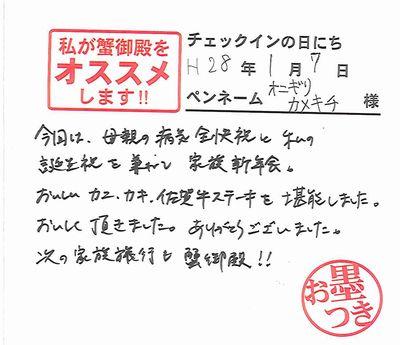 私が蟹御殿を
オススメ
します!!
チェックインの日にち
H 28 年 1 月 7 日
ペンネーム オニギリ カメキチ 様
今回は、母親の病気全快祝と私の
誕生祝を兼ねて家族新年会。
おいしいカニ、カキ、佐賀牛ステーキを堪能しました。
おいしく頂きました。ありがとうございました。
次の家族旅行も蟹御殿!!
お墨つき